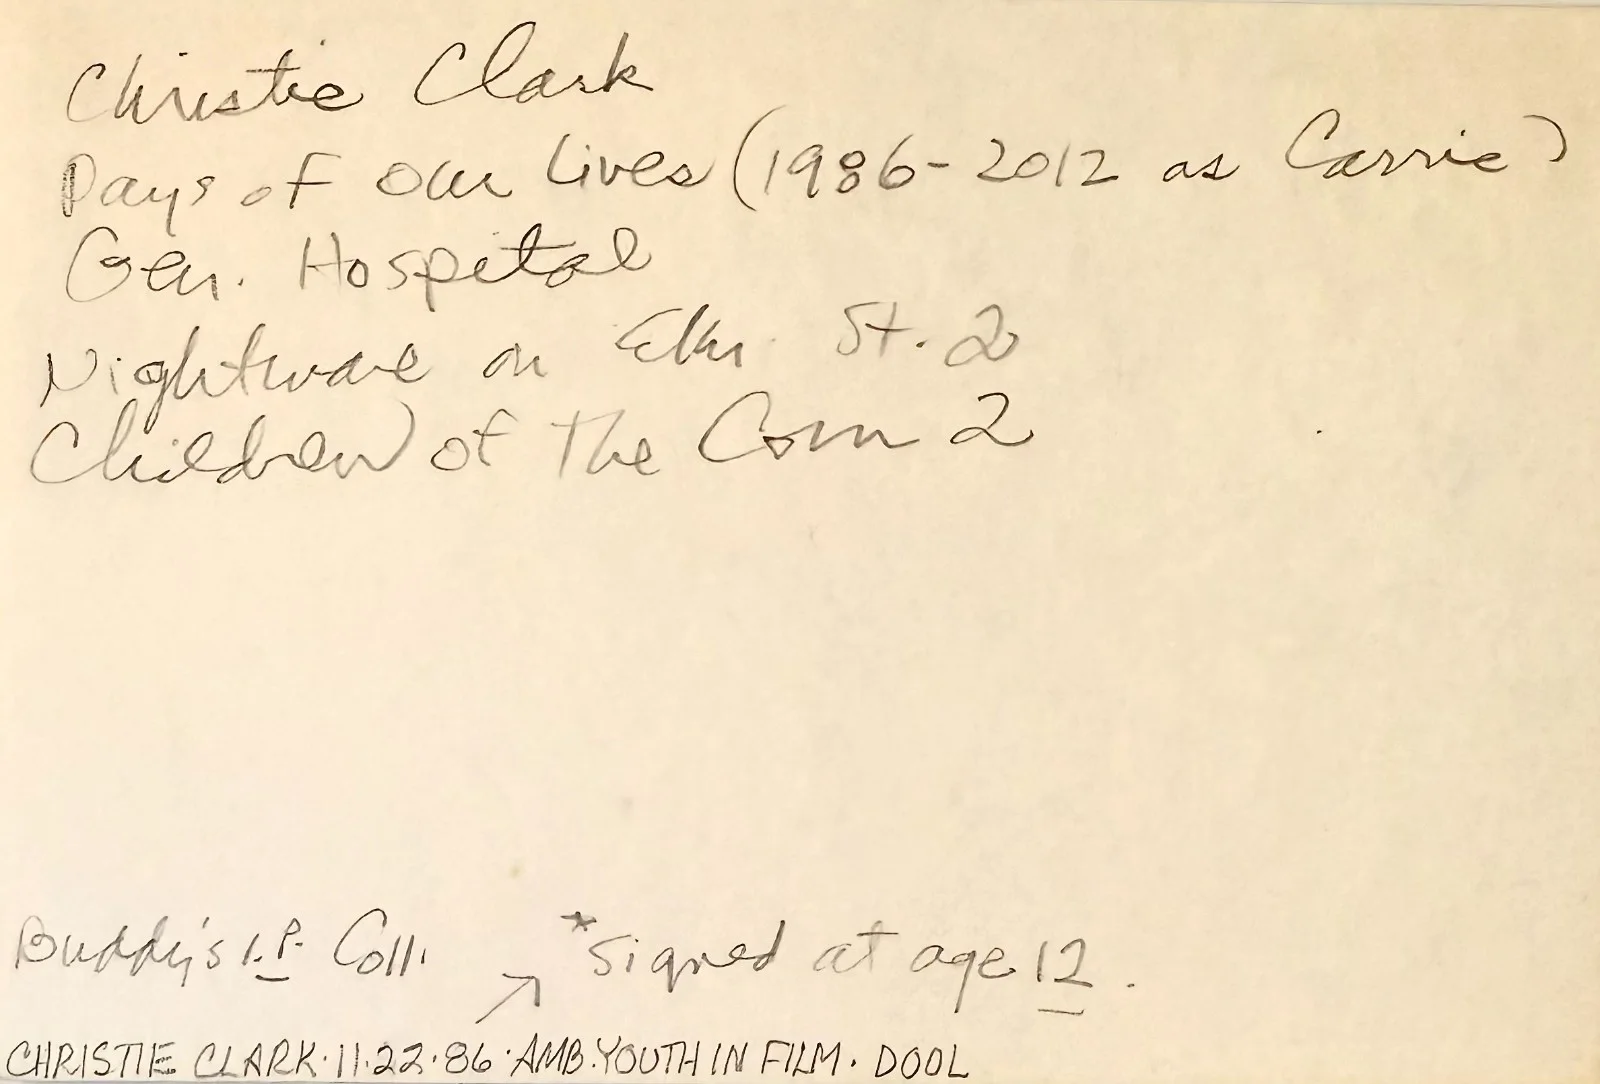 Christie Clark
Days of our Lives (1986-2012 as Carrie)
Gen. Hospital
Nightmare on Elm St. 2
Children of The Corn 2
Buddy's I.P. Coll. *Signed at age 12.
CHRISTIE CLARK·11·22·86·AMB.YOUTH IN FILM. DOOL